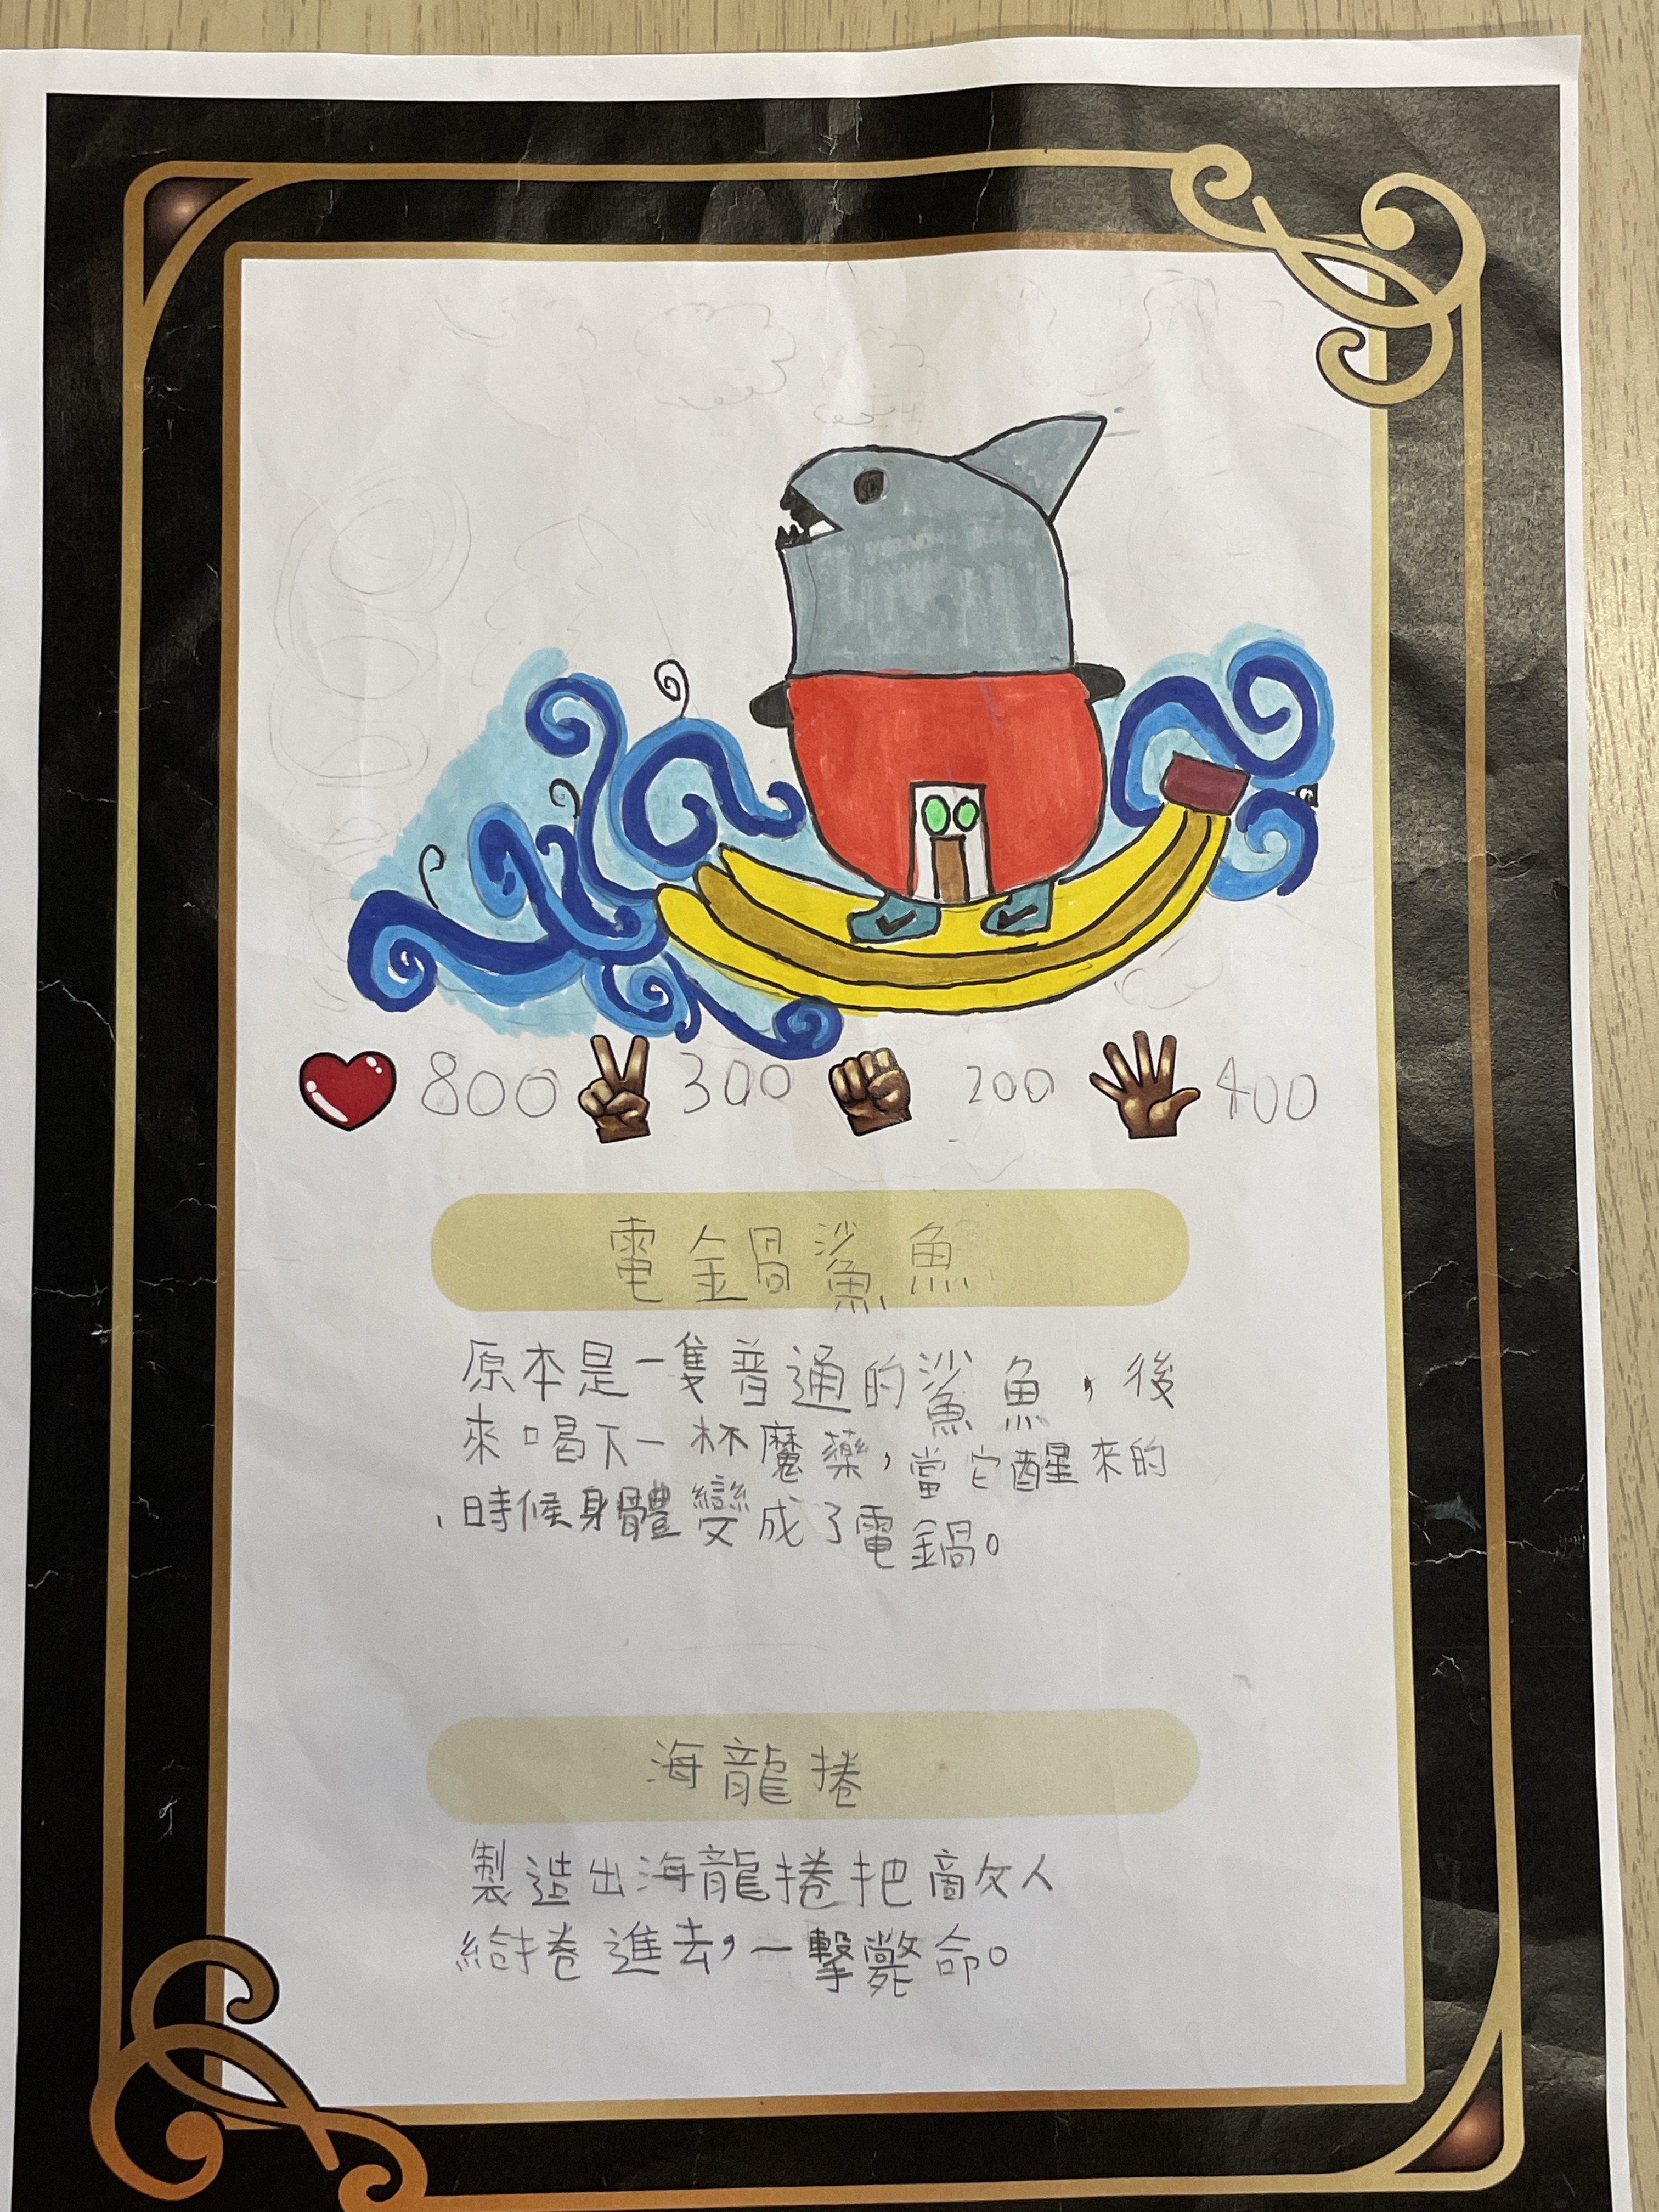 800 300 200 400
電鍋鯊魚
原本是一隻普通的鯊魚，後
來喝下一杯魔藥，當它醒來的
時候身體變成了電鍋。
海龍捲
製造出海龍捲把敵人
給捲進去，一擊斃命。